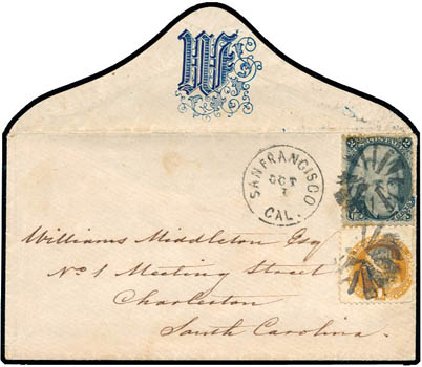 W
SAN FRANCISCO
OCT
CAL.
Williams Middleton Esq
No 1 Meeting Street
Charleston
South Carolina.